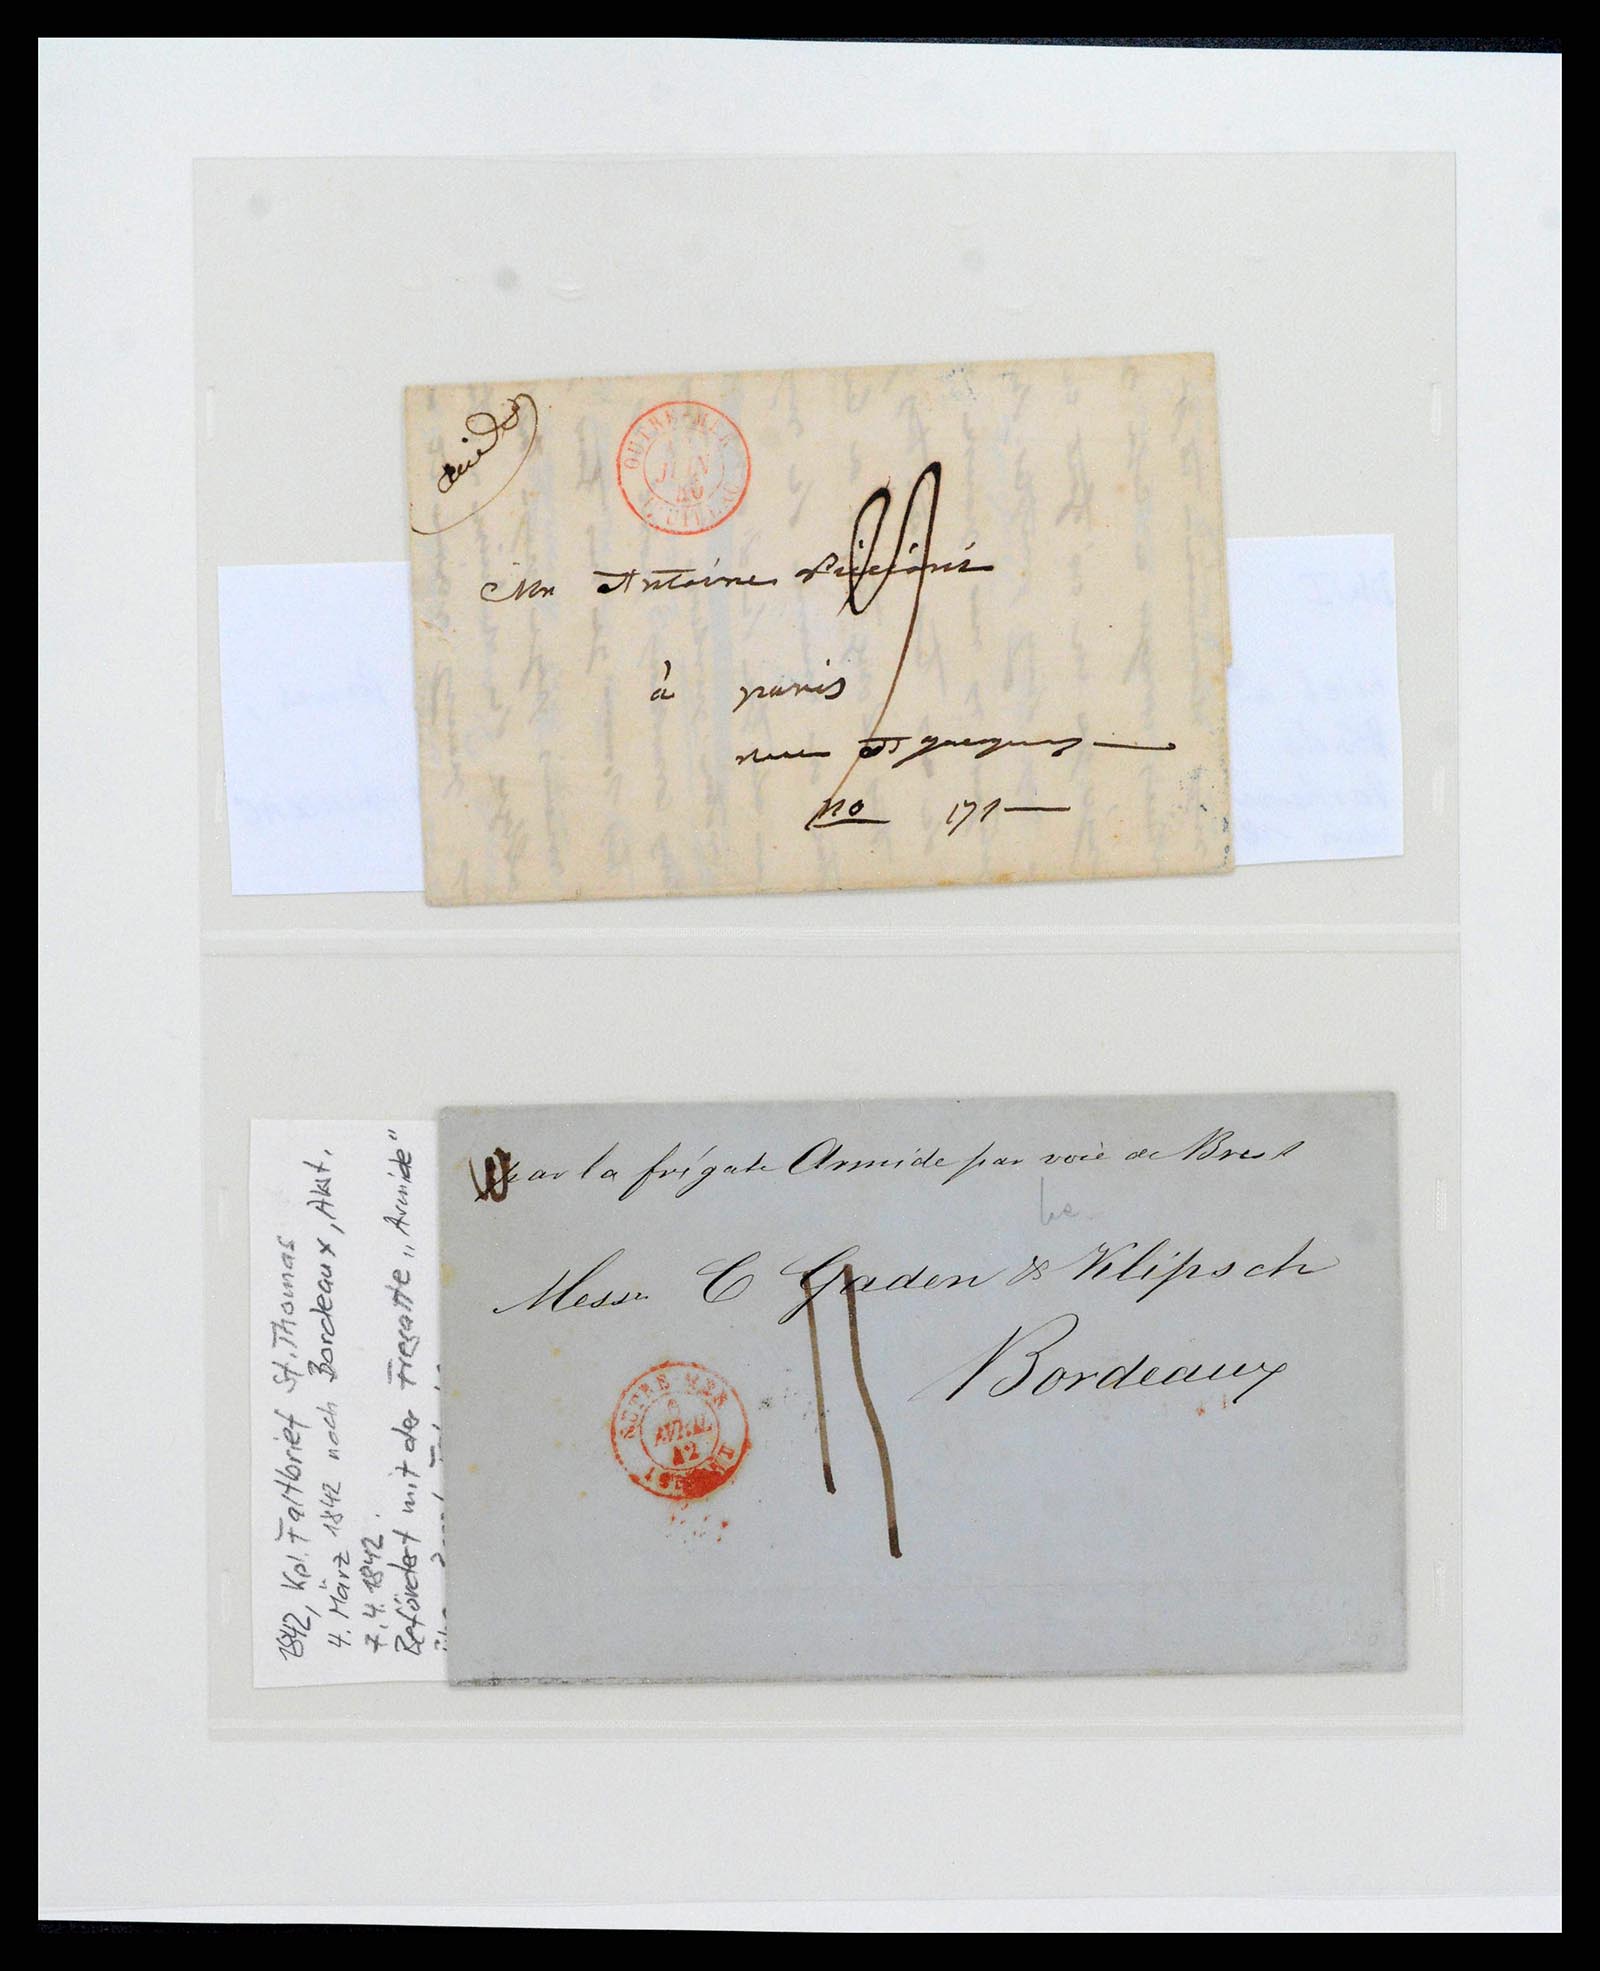 OUTRE-MER
JUIN
Mr Antoine
à paris
rue St Jacques
no 171
par la frégate Armide par voie de Brest
Messrs C Gaden & Klipsch
Bordeaux
OUTRE-MER
AVRIL
42
1842, Kpl. Faltbrief St. Thomas
4. März 1842 nach Bordeaux, Akst.
7.4.1842.
Befördert mit der Fregatte „Armide"